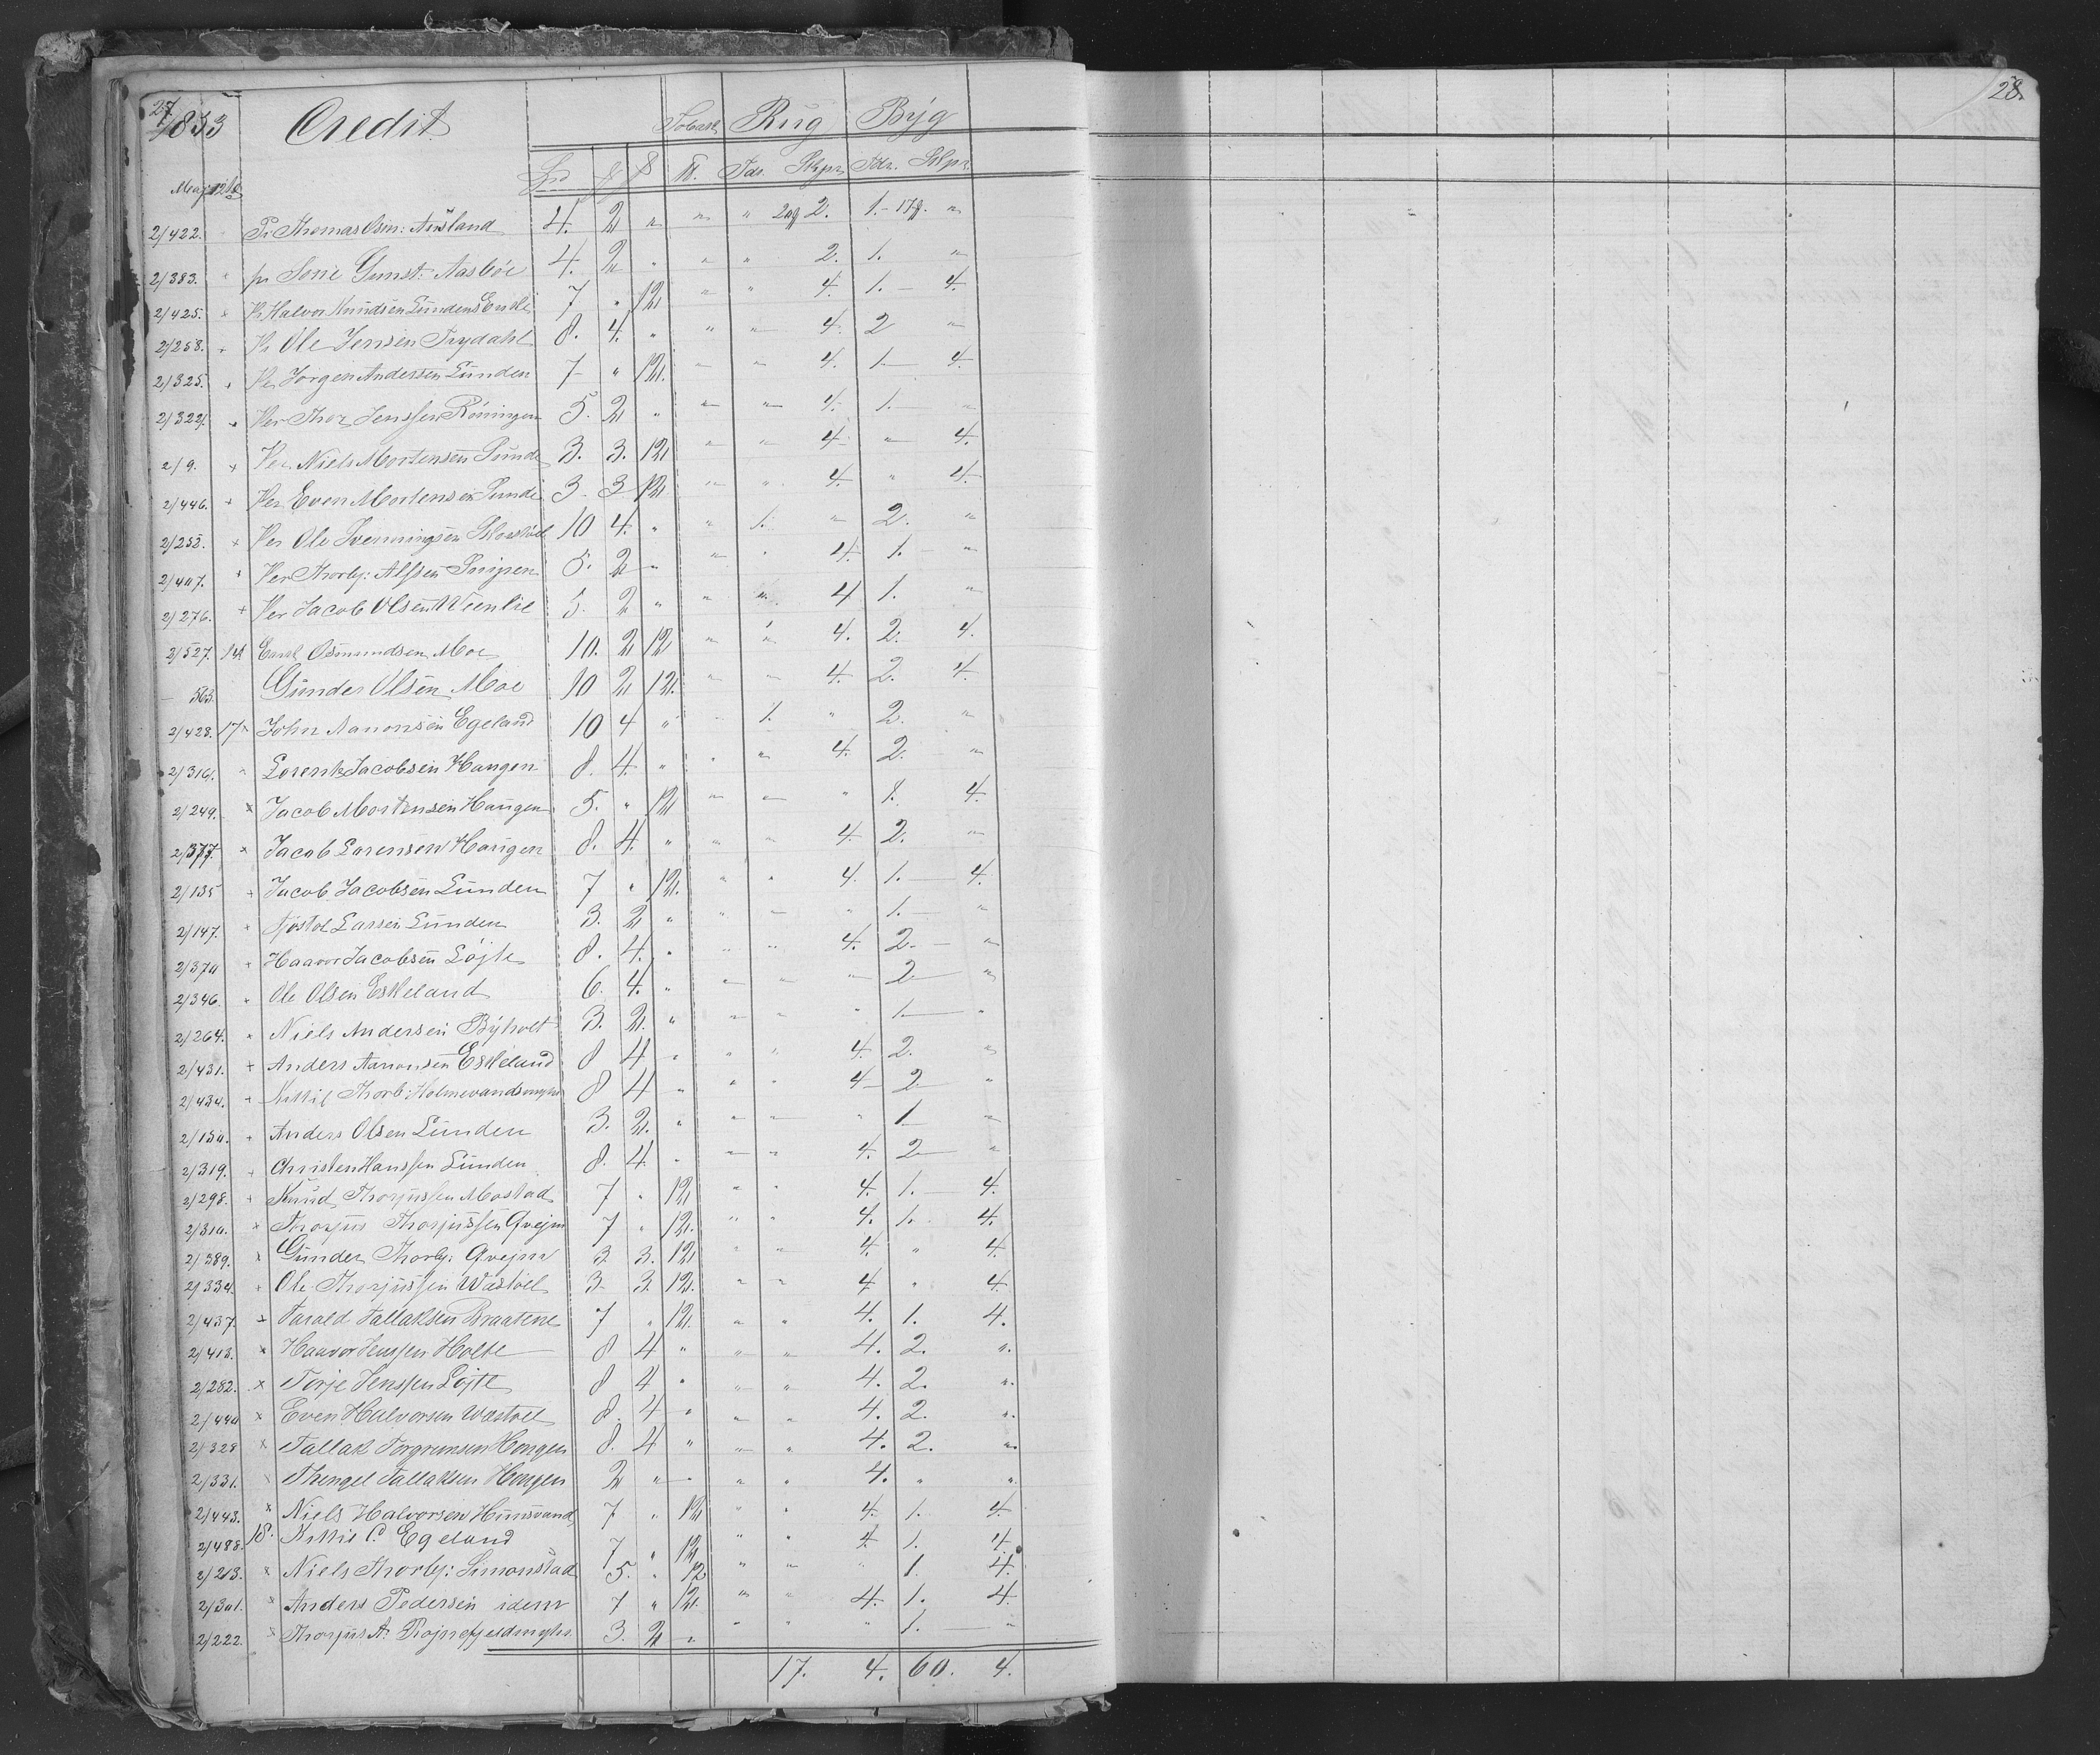 27
1853 Credit Tobak Rug Byg
Spd ₰ ß ℔. Tdr. Skpr. Tdr. Skpr.
Maj 12te
2/422. Pr Thomas Osm: Aasland 4. 2 " " " 2. 1. "
2/383. " pr Sorie Gunst: Aasböe 4. 2 " " " 2. 1. "
2/425. × Pr Halvor Knudsen Lundens Enke 7 " 12 " " 4. 1. — 4.
2/258. + Pr Ole Jensen Frydahl 8. 4. " " " 4. 2 "
2/325. + Per Jörgen Andersen Lunden 7 " 12. " " 4. 1. 4.
2/322. " Per Thor Jenssen Röningen 5. 2 " " " 4. 1. "
2/9. + Per Niels Mortensen Sunde 3. 3. 12 " " 4 " 4.
2/446. + Per Even Mortensen Sunde 3. 3 12 " " 4. " 4.
2/252. × Per Ole Svenningsen 10 4. " " 1. " 2. "
2/407. × Per Thorbj: Alfsen 5. 2 " " " 4. 1. — "
2/276. + Per Jacob Olsen Weenlie 5. 2 " " " 4 1. "
2/527. 14 Osmundsen Moe 10. 2 12 " " 4. 2. 4.
— 563. Gunder Olsen Moe 10 2 12. " " 4. 2. 4.
2/428. 17 × John Aanonsen Egeland 10 4 " " 1. " 2. "
2/316. " Lorents Jacobsen Haugen 8. 4. " " " 4. 2. "
2/249. × Jacob Mortensen Haugen 5. " 12 " " " 1. 4.
2/377. × Jacob Lorensen Haugen 8. 4. " " " 4. 2. "
2/135 + Jacob Jacobsen Lunden 7 " 12. " " 4. 1. — 4.
2/147. + Ajöstol Larsen Lunden 3. 2 " " " " 1. — "
2/370 + Haavor Jacobsen Löjte 8. 4. " " " 4. 2. — "
2/346. + Ole Olsen Eskeland 6. 4. " " " " 2 — "
2/264. × Niels Andersen Byholt 3. 2. " " " " 1 — "
2/431. + Anders Aanonsen Eskeland 8 4 " " " 4. 2. "
2/434. + Kittil Thorb: Holmevandsmyhr 8 4 " " " 4 — 2 "
2/150. + Anders Olsen Lunden 3. 2. " " " " 1 "
2/319. + Christen Hanssen Lunden 8. 4. " " " 4. 2 — "
2/298. + Knud Thorjussen Mostad 7 " 12 " " 4. 1. 4.
2/310. × Thorjus Thorjussen Qvejm 7 " 12. " " 4. 1. 4.
2/389. × Gunder Thorbj: Qvejm 3. 3. 12 " " 4. " 4.
2/334. + Ole Thorjussen Wastöel 3. 3. 12. " " 4 " 4.
2/437. + Tarald Tallaksen Braatene 7 " 12. " " 4. 1. 4.
2/413. × Haavor Jenssen Holte 8 4 " " " 4. 2. ".
2/282. × Torje Jenssen Löjte 8 4 " " " 4. 2. ".
2/440 × Even Halvorsen Wastöel 8. 4 " " " 4. 2. ".
2/328 × Tallak Torgrimsen Hougen 8. 4 " " " 4. 2. "
2/331. × Thengel Tallaksen Hougen 2 " " " " 4. " "
2/443. × Niels Halvorsen Hunsvand 7 " 12 " " 4. 1. 4.
2/488. 18. Kittil C. Egeland 7 " 12 " " 4. 1. 4.
2/213. × Niels Thorbj: Simonstad 5. " 12 " " " 1. 4.
2/301. × Anders Pedersen idem 7 " 12. " " 4. 1. 4.
2/222. × Thorjus A: Röjnefjeldmyhr 3. 2 " " " " 1. "
17. 4. 60. 4.
28.